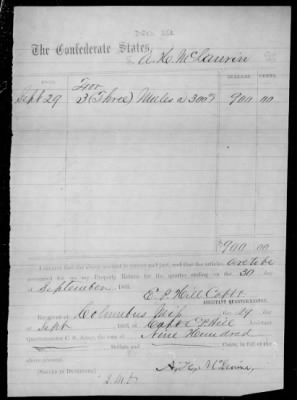 The Confederate States,
To A. C. McLaurin
DATE. DOLLARS. CENTS.
Sept 29 For
3 (Three) Mules a 300$ 900 00
$900 00
I CERTIFY that the above account is correct and just, and that the articles are to be
accounted for on my Property Return for the quarter ending on the 30 day
of September 186
E. P. Hill Capt
ASSISTANT QUARTERMASTER.
RECEIVED at Columbus Miss the 29 of
Sept 186 of Capt E P Hill Assistant
Quartermaster C. S. Army, the sum of Nine Hundred
Dollars and Cents, in full of the
above account.
[SIGNED IN DUPLICATE.]